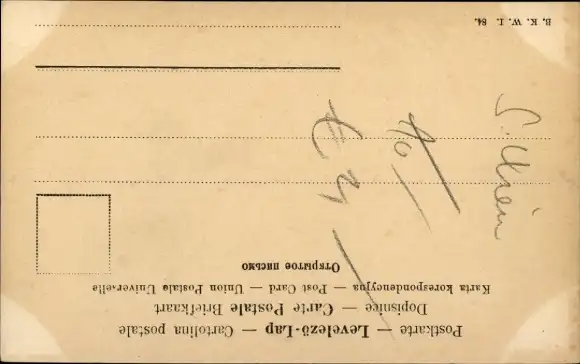 Postkarte — Levelező-Lap — Cartolina postale
Dopisnice — Carte Postale Briefkaart
Karta korespondencyjna — Post Card — Union Postale Universelle
Открытое письмо
B. K. W. I. 84.